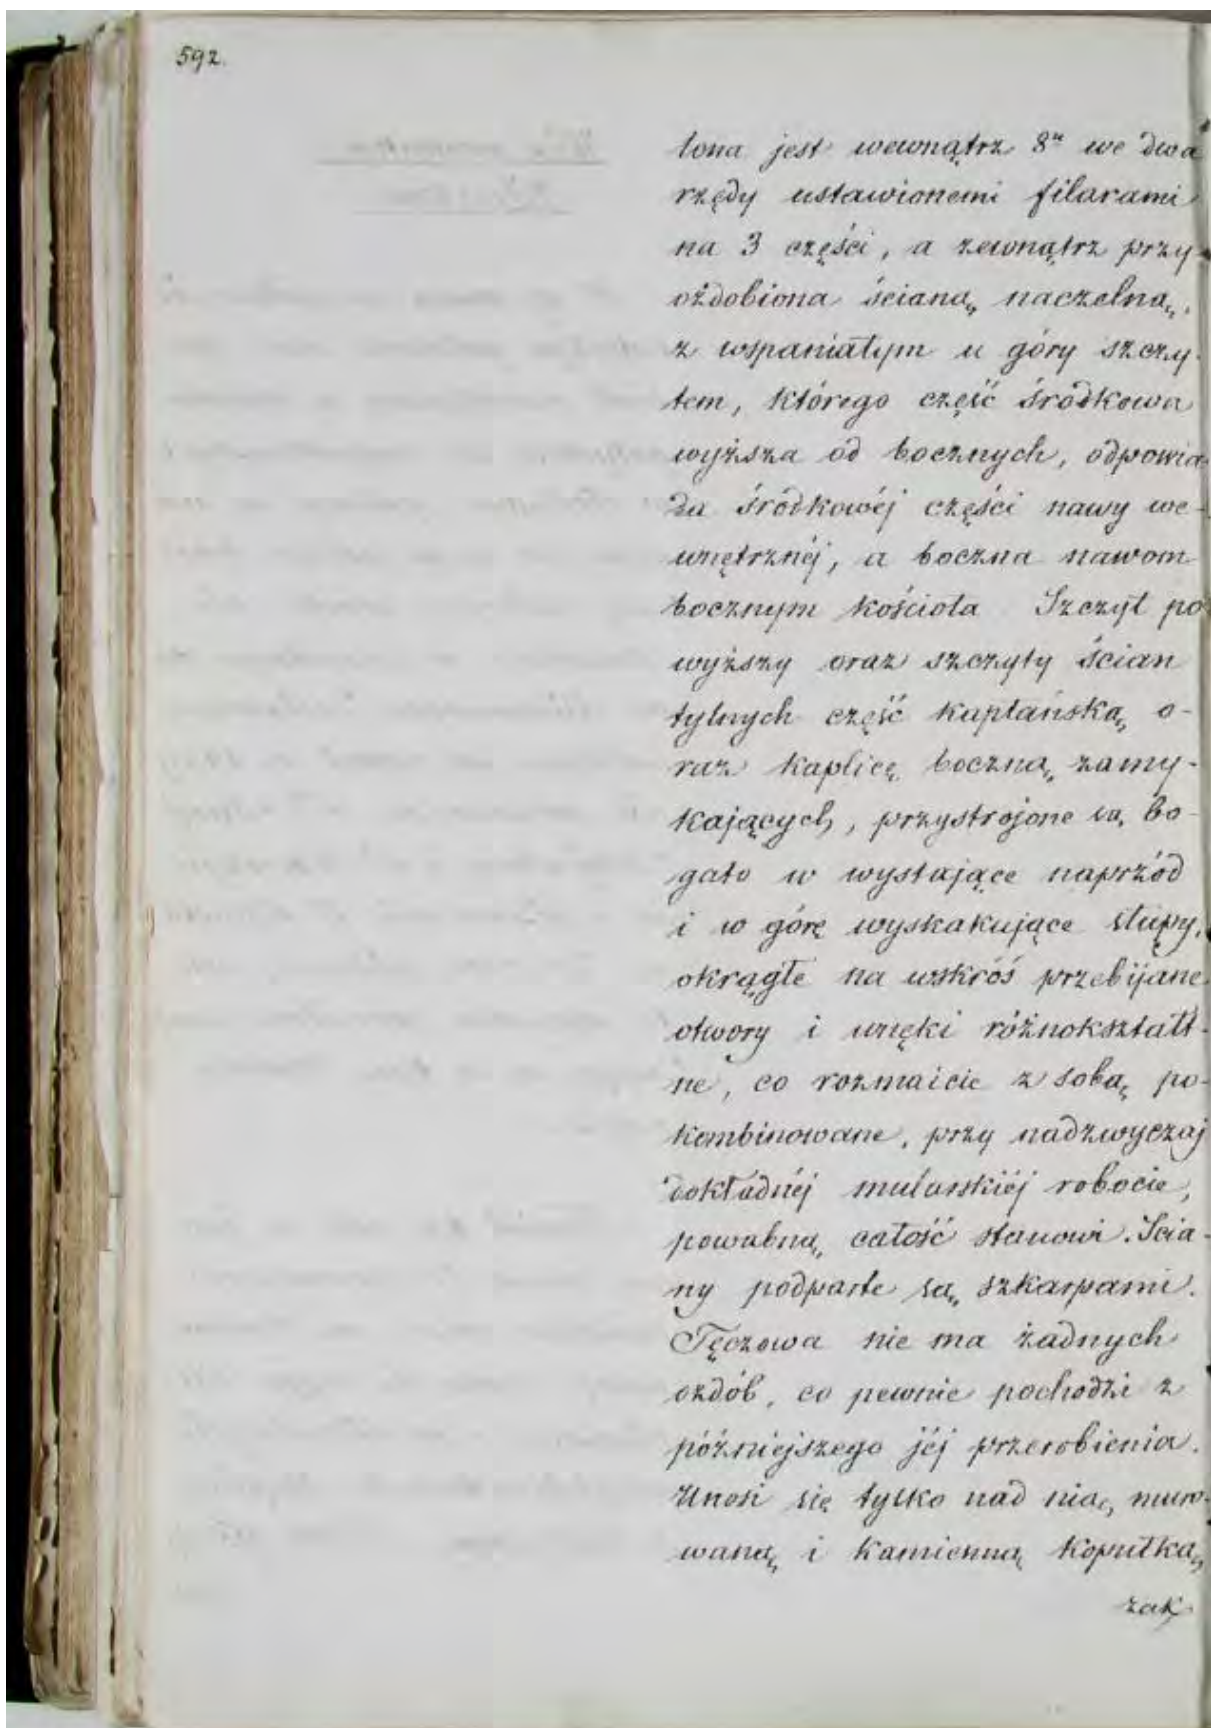 592.
lona jest wewnątrz 8u we dwa
rzędy ustawionemi filarami
na 3 części, a zewnątrz przy-
ożdobiona ścianą naczelną,
z wspaniałym u góry szczy-
tem, którego część środkowa
wyższa od bocznych, odpowia-
da śródkowéj części nawy we-
wnętrznéj, a boczna nawom
bocznym kościoła Szczyt po
wyższy oraz szczyty ścian
tylnych część kapłańską o-
raz kaplicę boczną zamy-
kających, przystrojone są bo-
gato w wystające naprzód
i w górę wyskakujące słupy,
okrągłe na wskróś przebijane
otwory i wnęki różnokształt-
ne, co rozmaicie z sobą po-
kombinowane, przy nadzwyczaj
dokładnéj mularskiéj robocie,
powabną całość stanowi. Scia-
ny podparte są szkarpami.
Tęczowa nie ma żadnych
ozdób, co pewnie pochodzi z
późniejszego jéj przerobienia.
Unosi się tylko nad nią muro-
waną i kamienną kopułką
zak